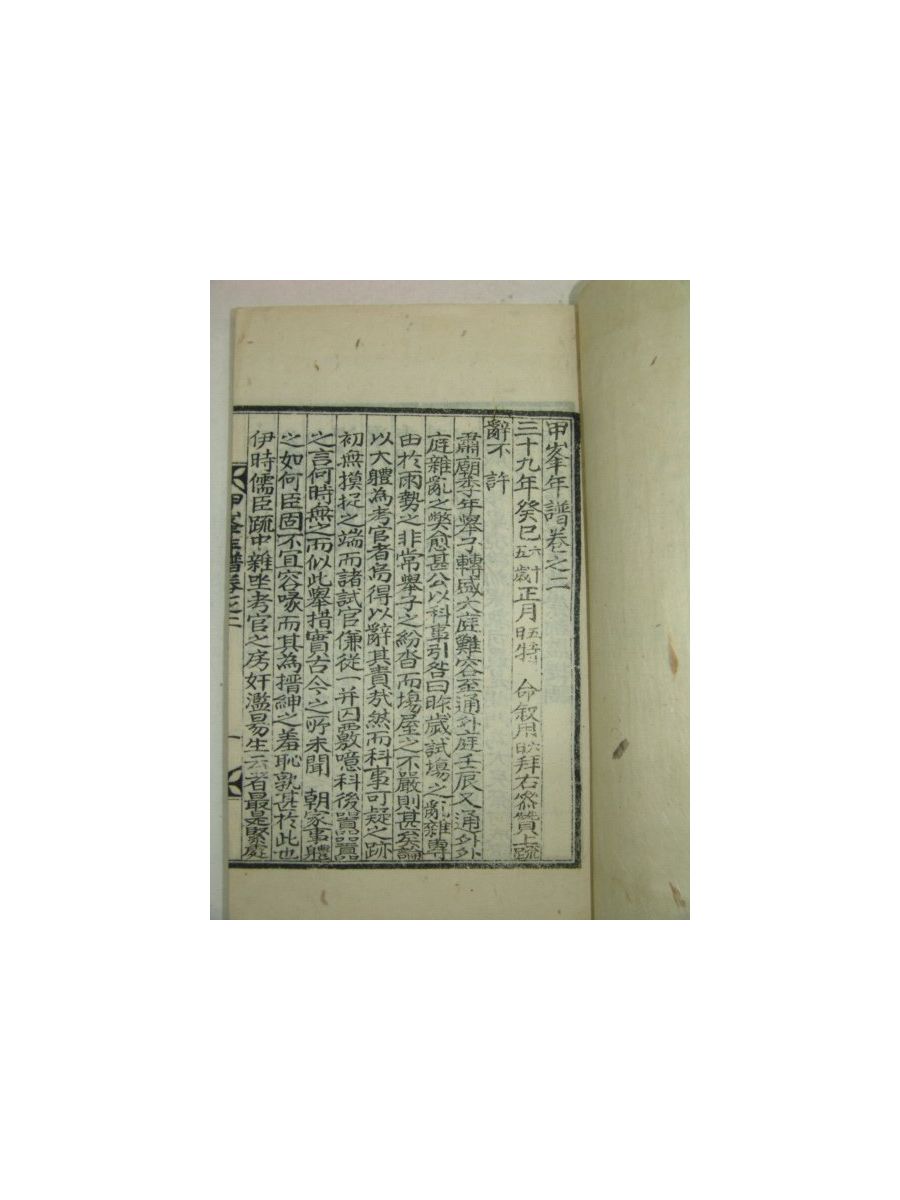 甲峯年譜卷之二
三十九年癸巳六十五歲正月五日特 命叙用六日拜右參贊上疏
辭不 許
肅廟季年擧子轉盛大庭難容至通外庭壬辰又通外外
庭雜亂之弊愈甚公以科事引咎曰昨歲試場之亂雜專
由於雨勢之非常擧子之紛沓而場屋之不嚴則甚矣論
以大體為考官者焉得以辭其責㢤然而科事可疑之跡
初無摸捉之端而諸試官傔從一并囚覈噫科後囂囂
之言何時無之而似此擧措實古今之所未聞 朝家事軆
之如何臣固不宜容喙而其為搢紳之羞恥孰甚於此也
伊時儒臣疏中雜坐考官之房奸濫易生云者最是緊
甲峯年譜卷之二
一